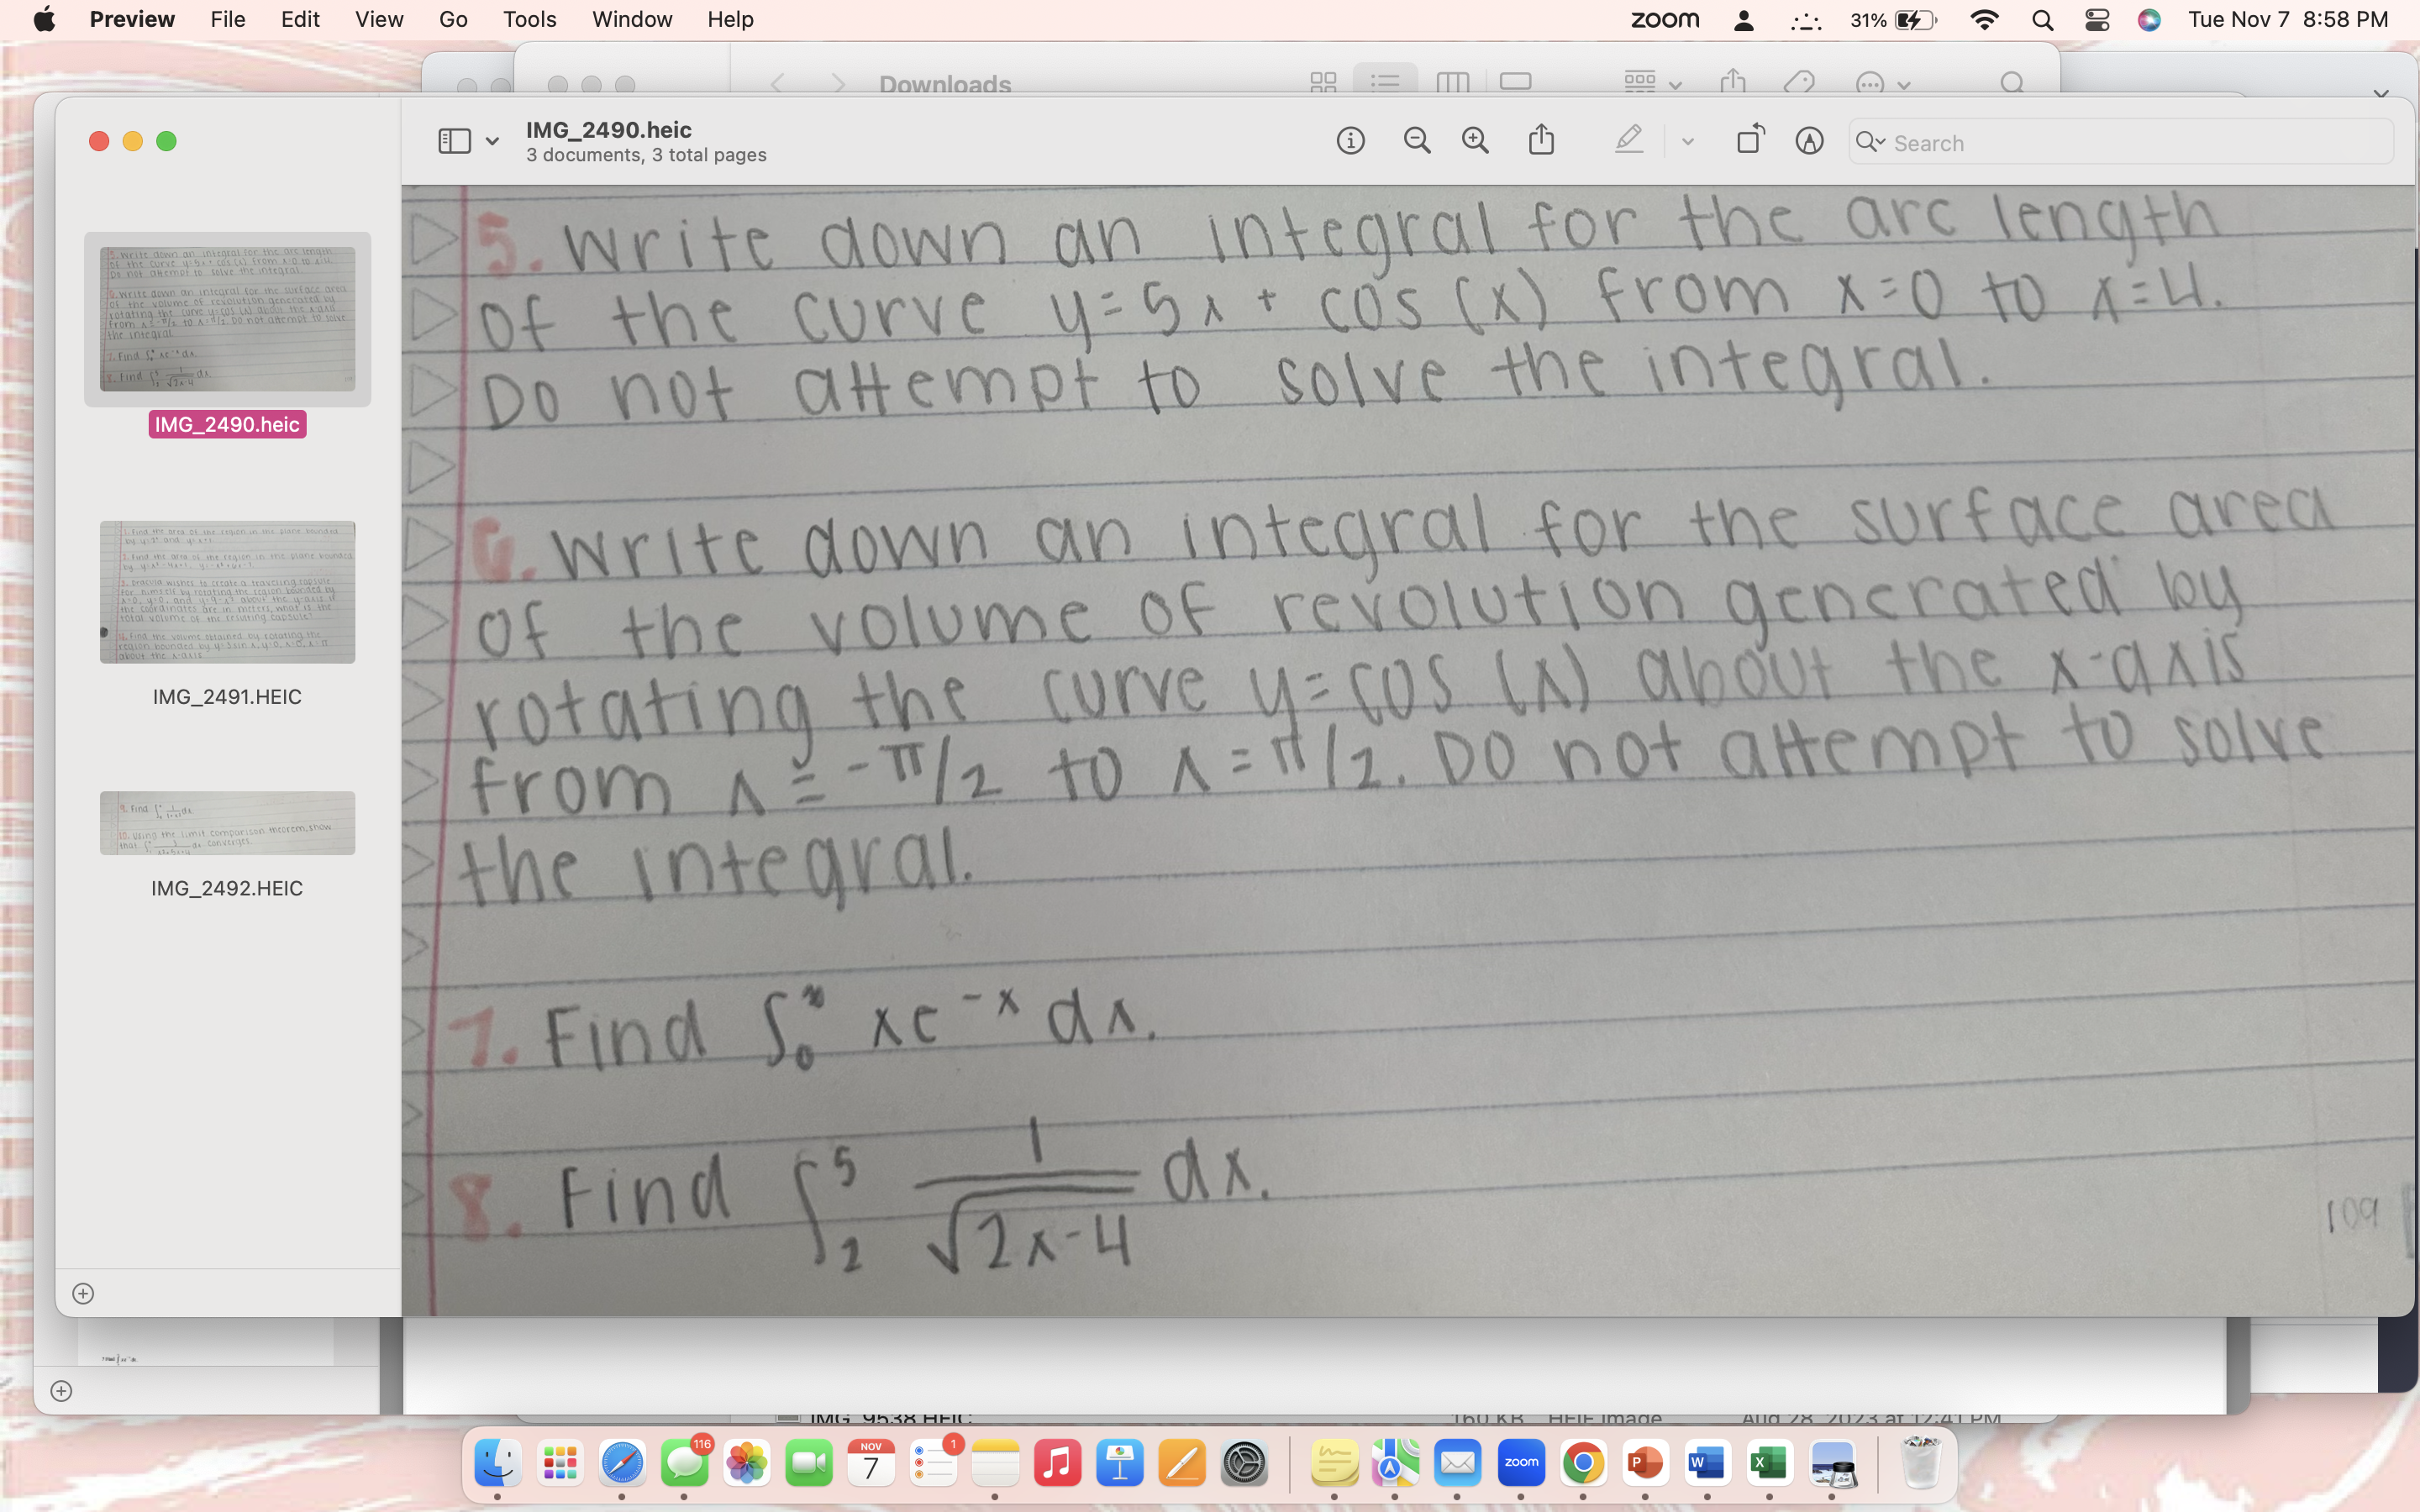 Preview File Edit View Go Tools Window Help zoom 31% Tue Nov 7 8:58 PM
Downloads
IMG_2490.heic
3 documents, 3 total pages
Search
IMG_2490.heic
IMG_2491.HEIC
IMG_2492.HEIC
5. Write down an integral for the arc length
of the curve y=5x + cos (x) from x=0 to x=4.
Do not attempt to solve the integral.
6. Write down an integral for the surface area
of the volume of revolution generated by
rotating the curve y=cos (x) about the x-axis
from x = -π/2 to x = π/2. Do not attempt to solve
the integral.
7. Find ∫₀^∞ xe^-x dx.
8. Find ∫₂^5 1/√(2x-4) dx.
109
IMG_9538.HEIC 160 KB HEIF Image Aug 28, 2023 at 12:41 PM
116
NOV
7
1
zoom
P
W
X